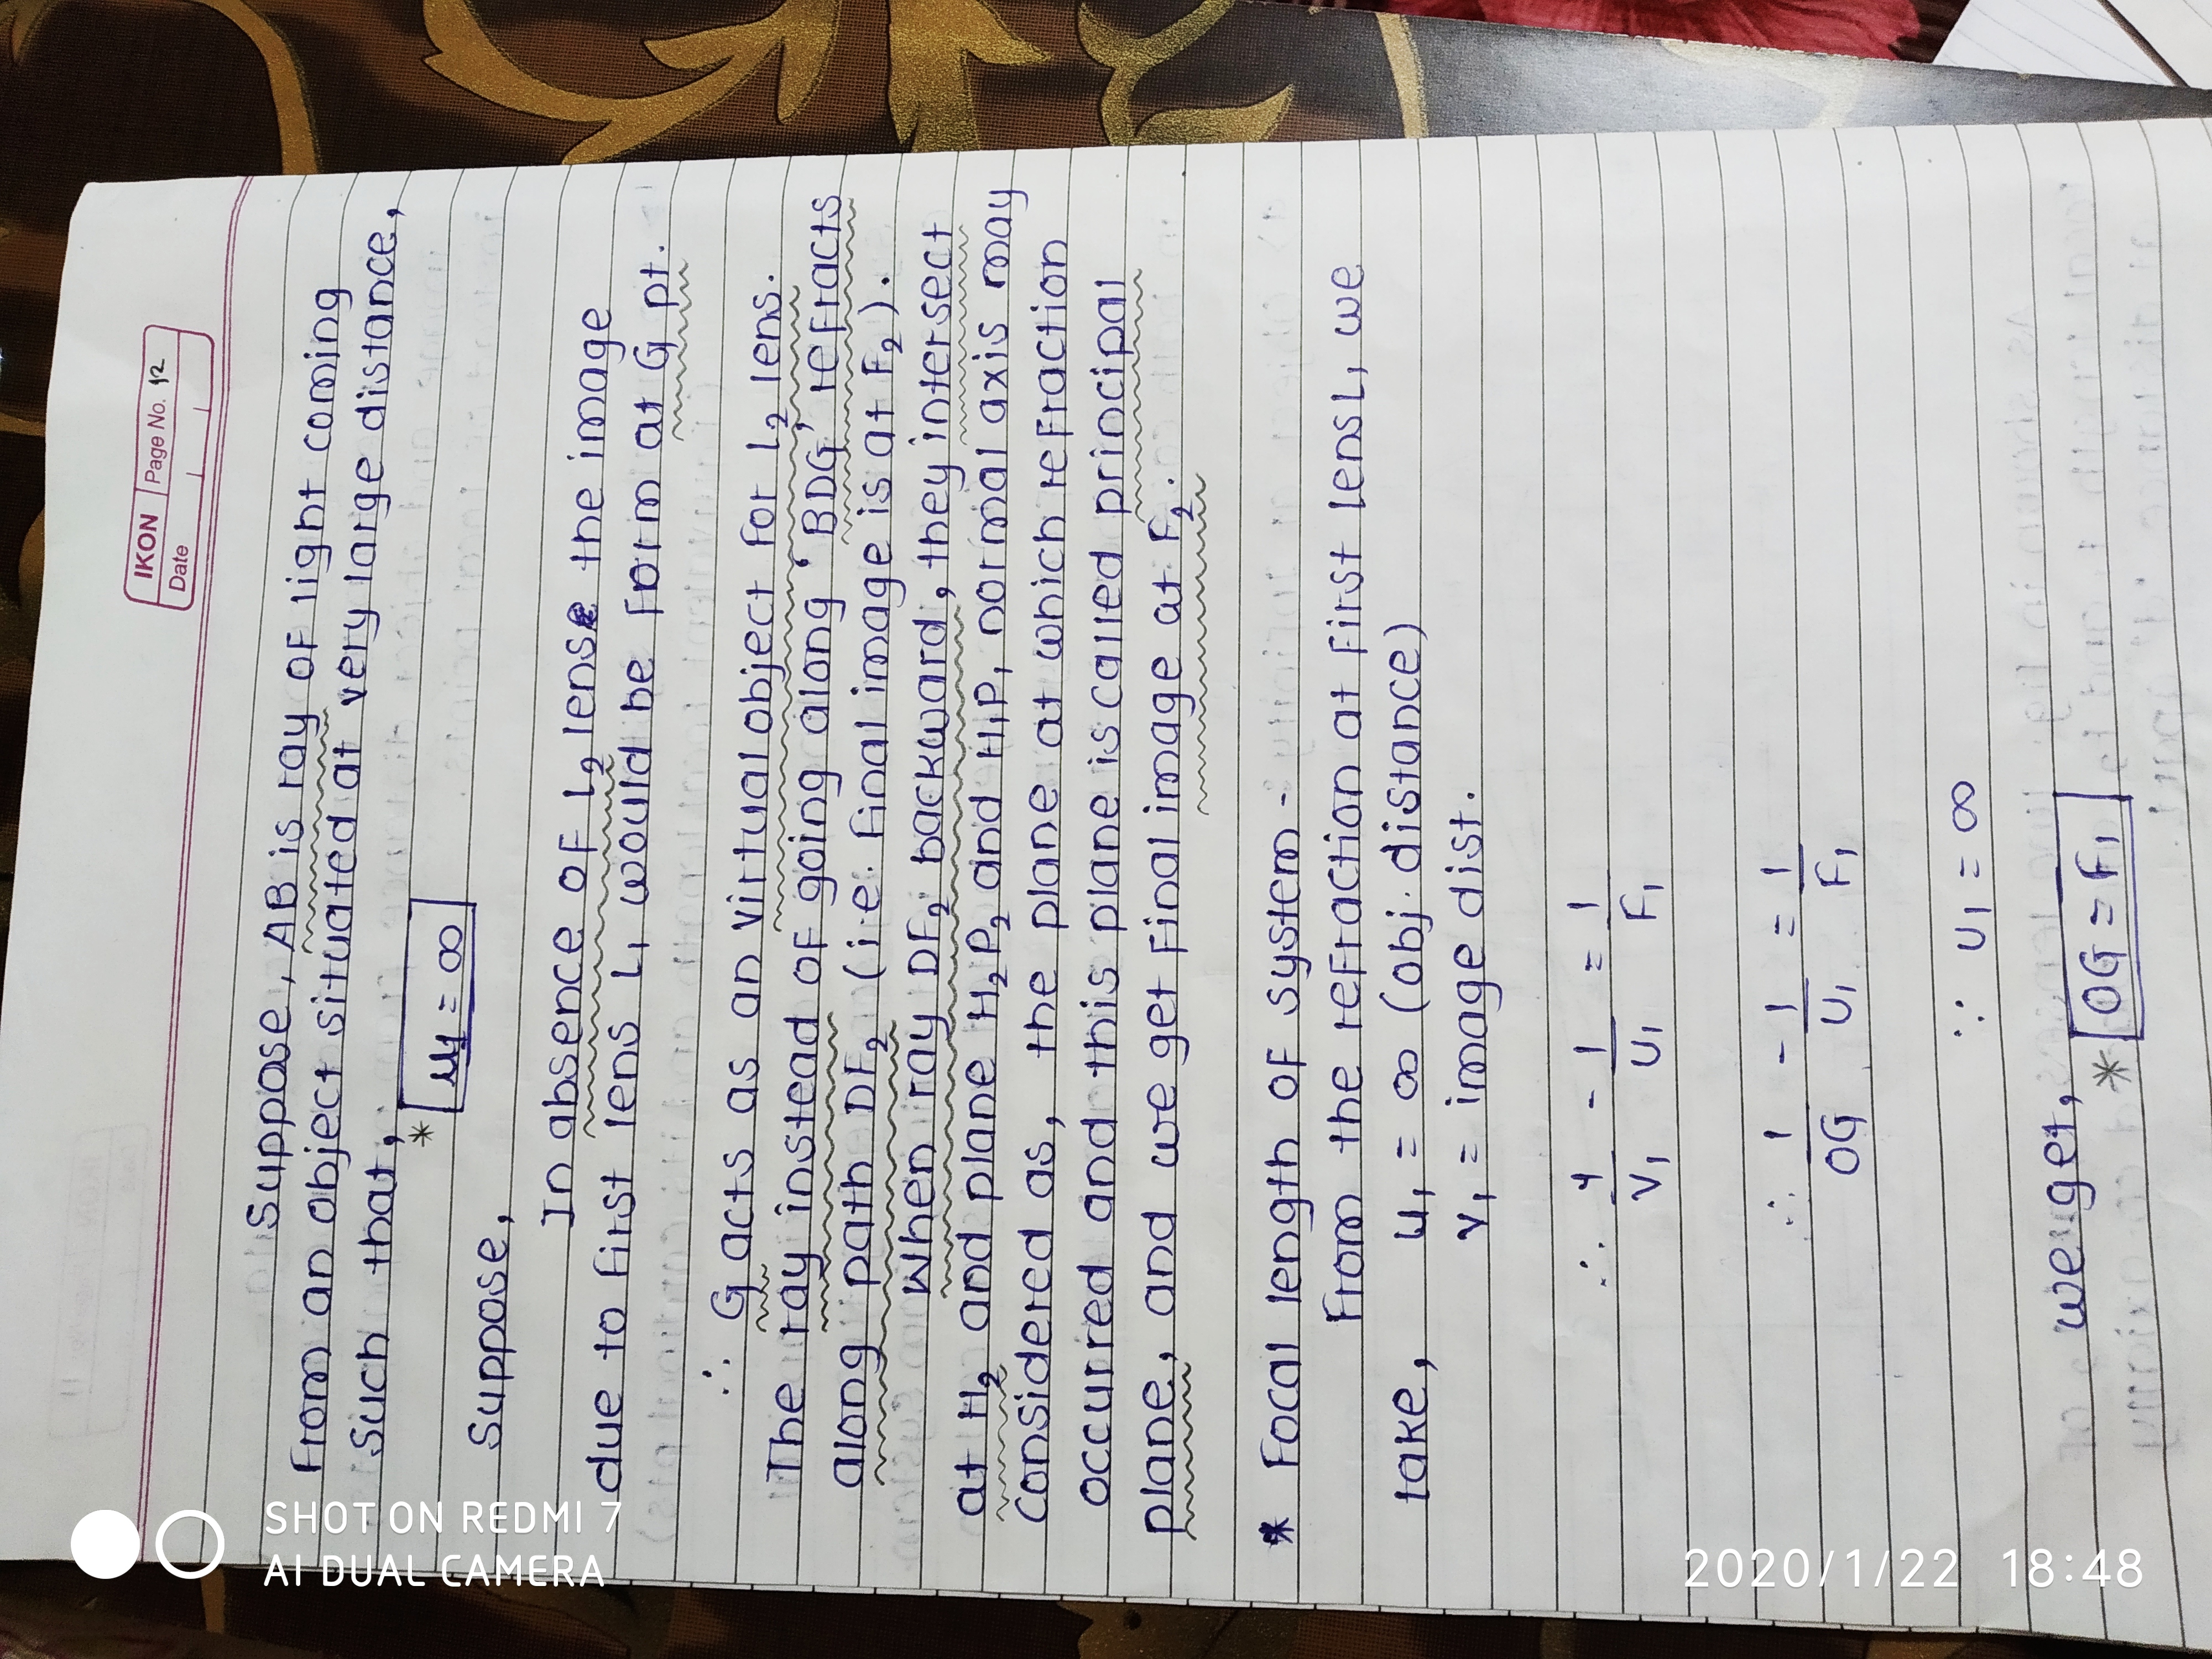 IKON Page No. 12
Date
Suppose, AB is ray of light coming
from an object situated at very large distance,
Such that,
* u₁ = ∞
Suppose,
In absence of L₂ lens the image
due to first lens L₁ would be form at G pt.
∴ G acts as an virtual object for L₂ lens.
The ray instead of going along 'BDG' refracts
along path DF₂ (i.e. final image is at F₂).
When ray DF₂ backward, they intersect
at H₂ and plane H₂P₂ and H₁P₁ normal axis may
Considered as, the plane at which refraction
occurred and this plane is called principal
plane, and we get final image at F₂.
* Focal length of system -
From the refraction at first lens L, we
take, u₁ = ∞ (obj. distance)
v₁ = image dist.
∴ 1/v₁ - 1/u₁ = 1/F₁
∴ 1/OG - 1/u₁ = 1/F₁
∵ u₁ = ∞
we get,
* OG = F₁
SHOT ON REDMI 7
AI DUAL CAMERA
2020/1/22 18:48